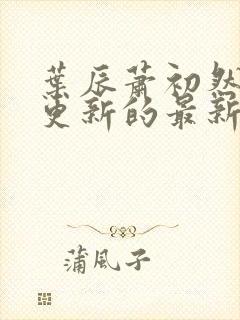 葉辰蕭初然
更新的最新
蒲風子